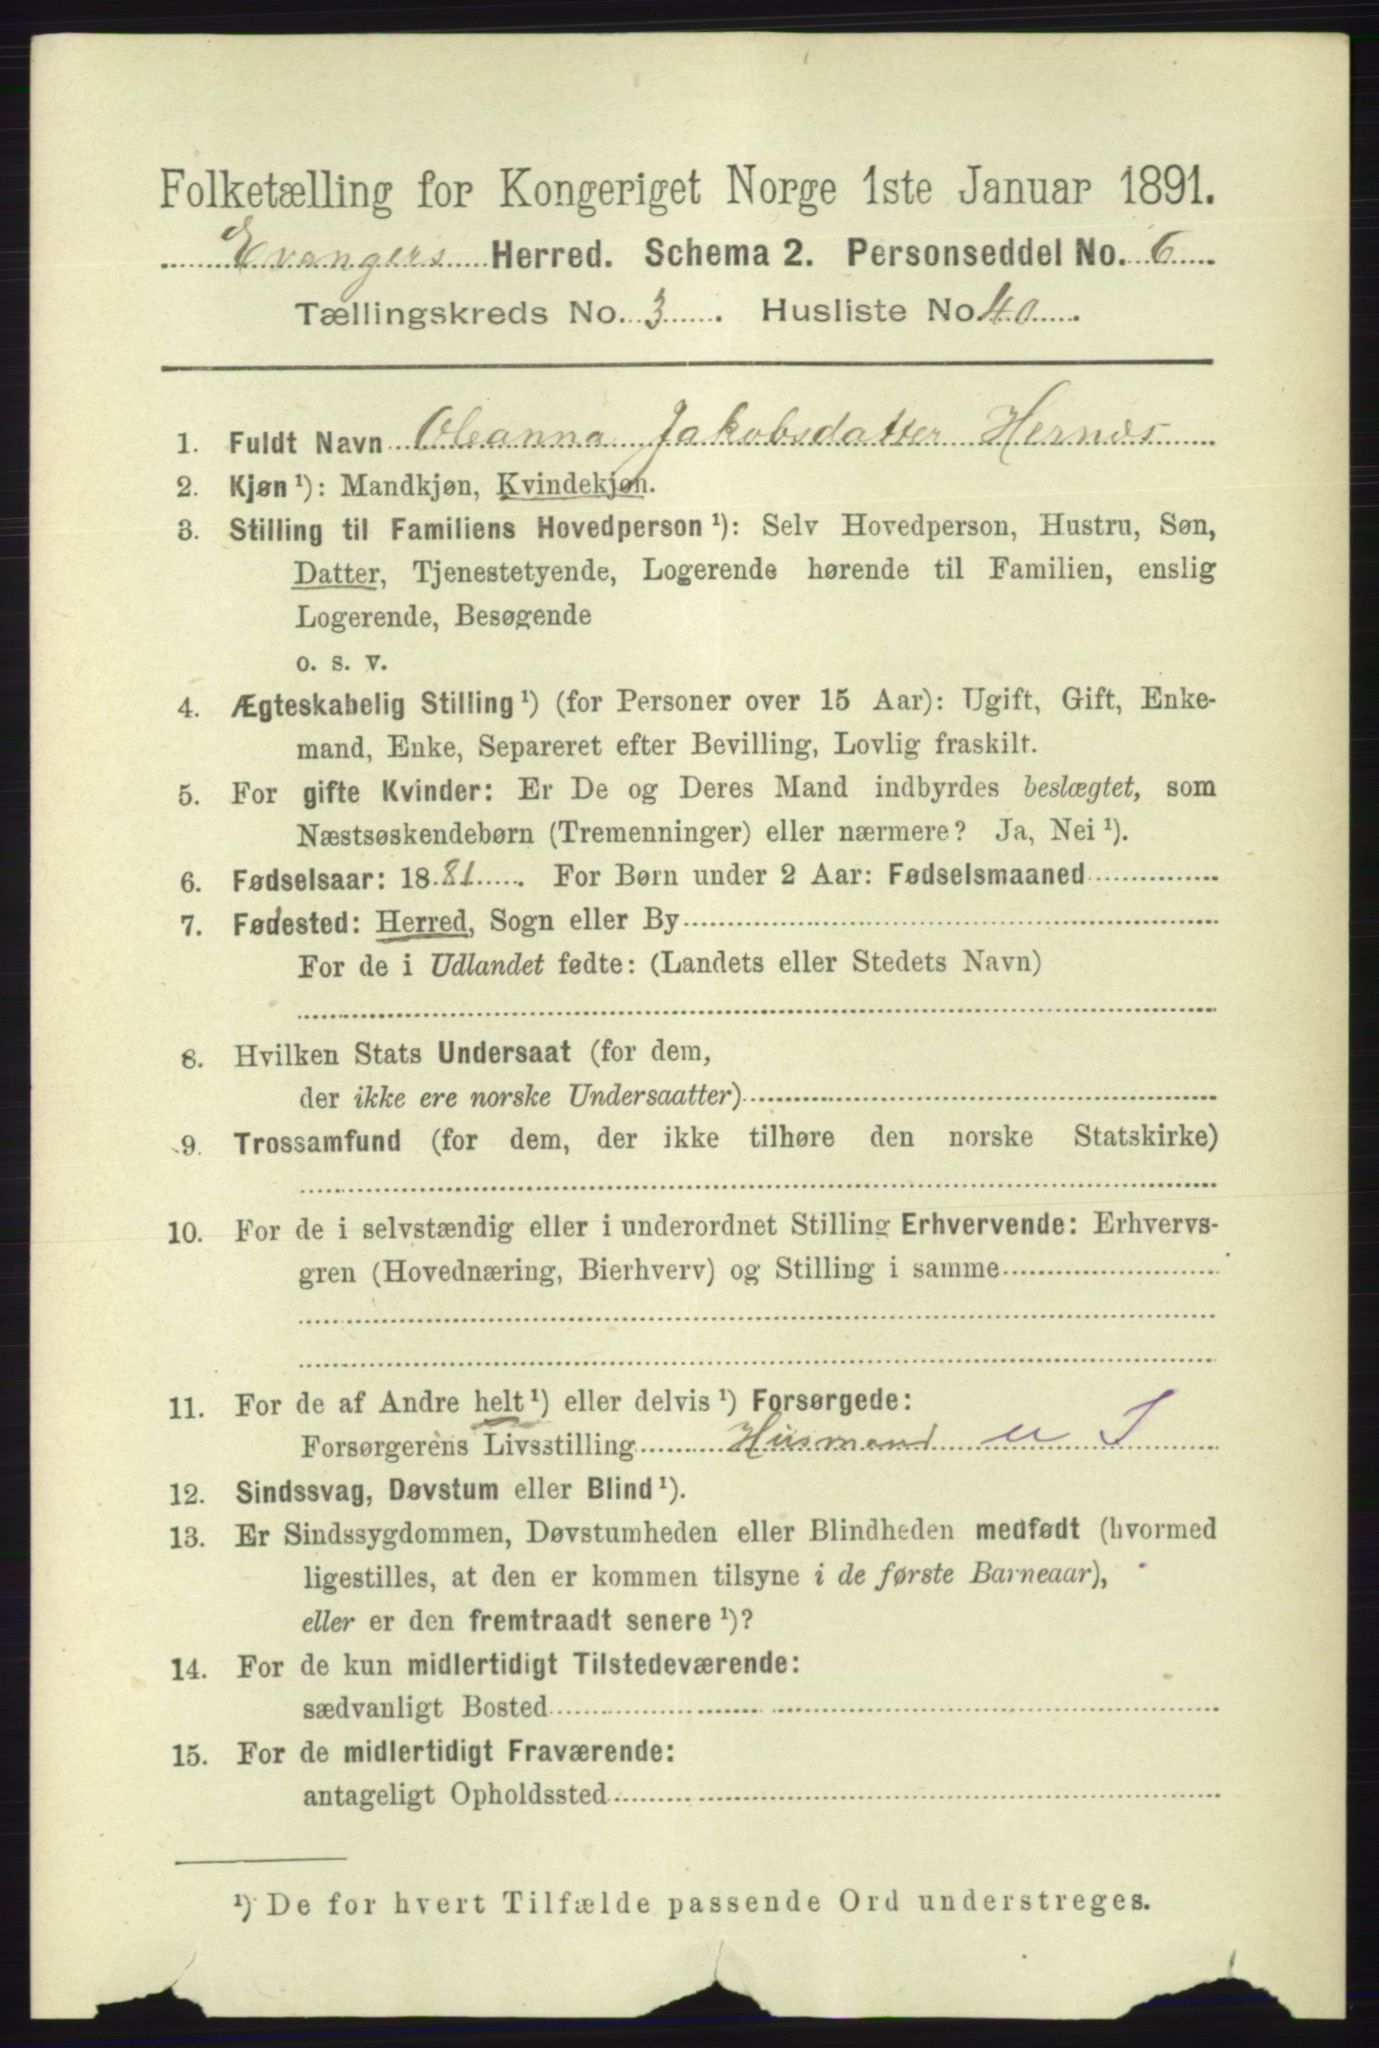 Folketælling for Kongeriget Norge 1ste Januar 1891.
Evangers Herred. Schema 2. Personseddel No. 6
Tællingskreds No. 3. Husliste No 40.
1. Fuldt Navn Oleanna Jakobsdatter Hernes
2. Kjøn ¹): Mandkjøn, Kvindekjøn.
3. Stilling til Familiens Hovedperson ¹): Selv Hovedperson, Hustru, Søn,
Datter, Tjenestetyende, Logerende hørende til Familien, enslig
Logerende, Besøgende
o. s. v.
4. Ægteskabelig Stilling ¹) (for Personer over 15 Aar): Ugift, Gift, Enke-
mand, Enke, Separeret efter Bevilling, Lovlig fraskilt.
5. For gifte Kvinder: Er De og Deres Mand indbyrdes beslægtet, som
Næstsøskendebørn (Tremenninger) eller nærmere? Ja, Nei ¹).
6. Fødselsaar: 1881. For Børn under 2 Aar: Fødselsmaaned
7. Fødested: Herred, Sogn eller By
For de i Udlandet fødte: (Landets eller Stedets Navn)
8. Hvilken Stats Undersaat (for dem,
der ikke ere norske Undersaatter)
9. Trossamfund (for dem, der ikke tilhøre den norske Statskirke)
10. For de i selvstændig eller i underordnet Stilling Erhvervende: Erhvervs-
gren (Hovednæring, Bierhverv) og Stilling i samme
11. For de af Andre helt ¹) eller delvis ¹) Forsørgede:
Forsørgerens Livsstilling Husmand u J
12. Sindssvag, Døvstum eller Blind ¹).
13. Er Sindssygdommen, Døvstumheden eller Blindheden medfødt (hvormed
ligestilles, at den er kommen tilsyne i de første Barneaar),
eller er den fremtraadt senere ¹)?
14. For de kun midlertidigt Tilstedeværende:
sædvanligt Bosted
15. For de midlertidigt Fraværende:
antageligt Opholdssted
¹) De for hvert Tilfælde passende Ord understreges.